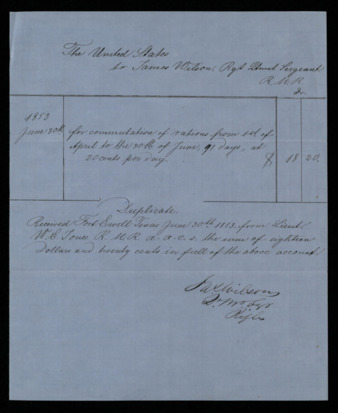 The United States
to James Wilson, Regt Quart Sergeant
R.M.R.
Dr.
1853
June 30th for commutation of rations from 1st of
April to the 30th of June, 91 days, at
20 cents per day. $ 18 20.
Duplicate.
Received Fort Ewell Texas June 30th 1853 from Lieut
W. E. Jones R.M.R. a. a. c. s. the sum of eighteen
Dollars and twenty cents in full of the above account.
Jas Wilson
Rifles